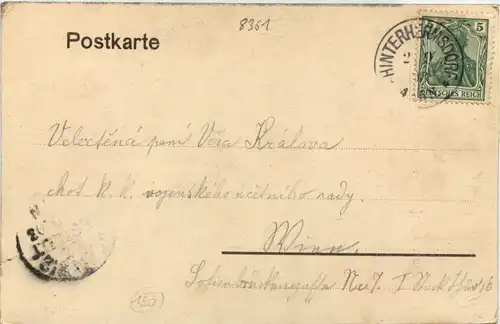 8361
Postkarte
HINTERHERMSDORF
5
DEUTSCHES REICH
Velectěná paní Věra Králova
choť k. k. vojenského účetního rady.
Wien.
No 7. I Stock Thür 16
150